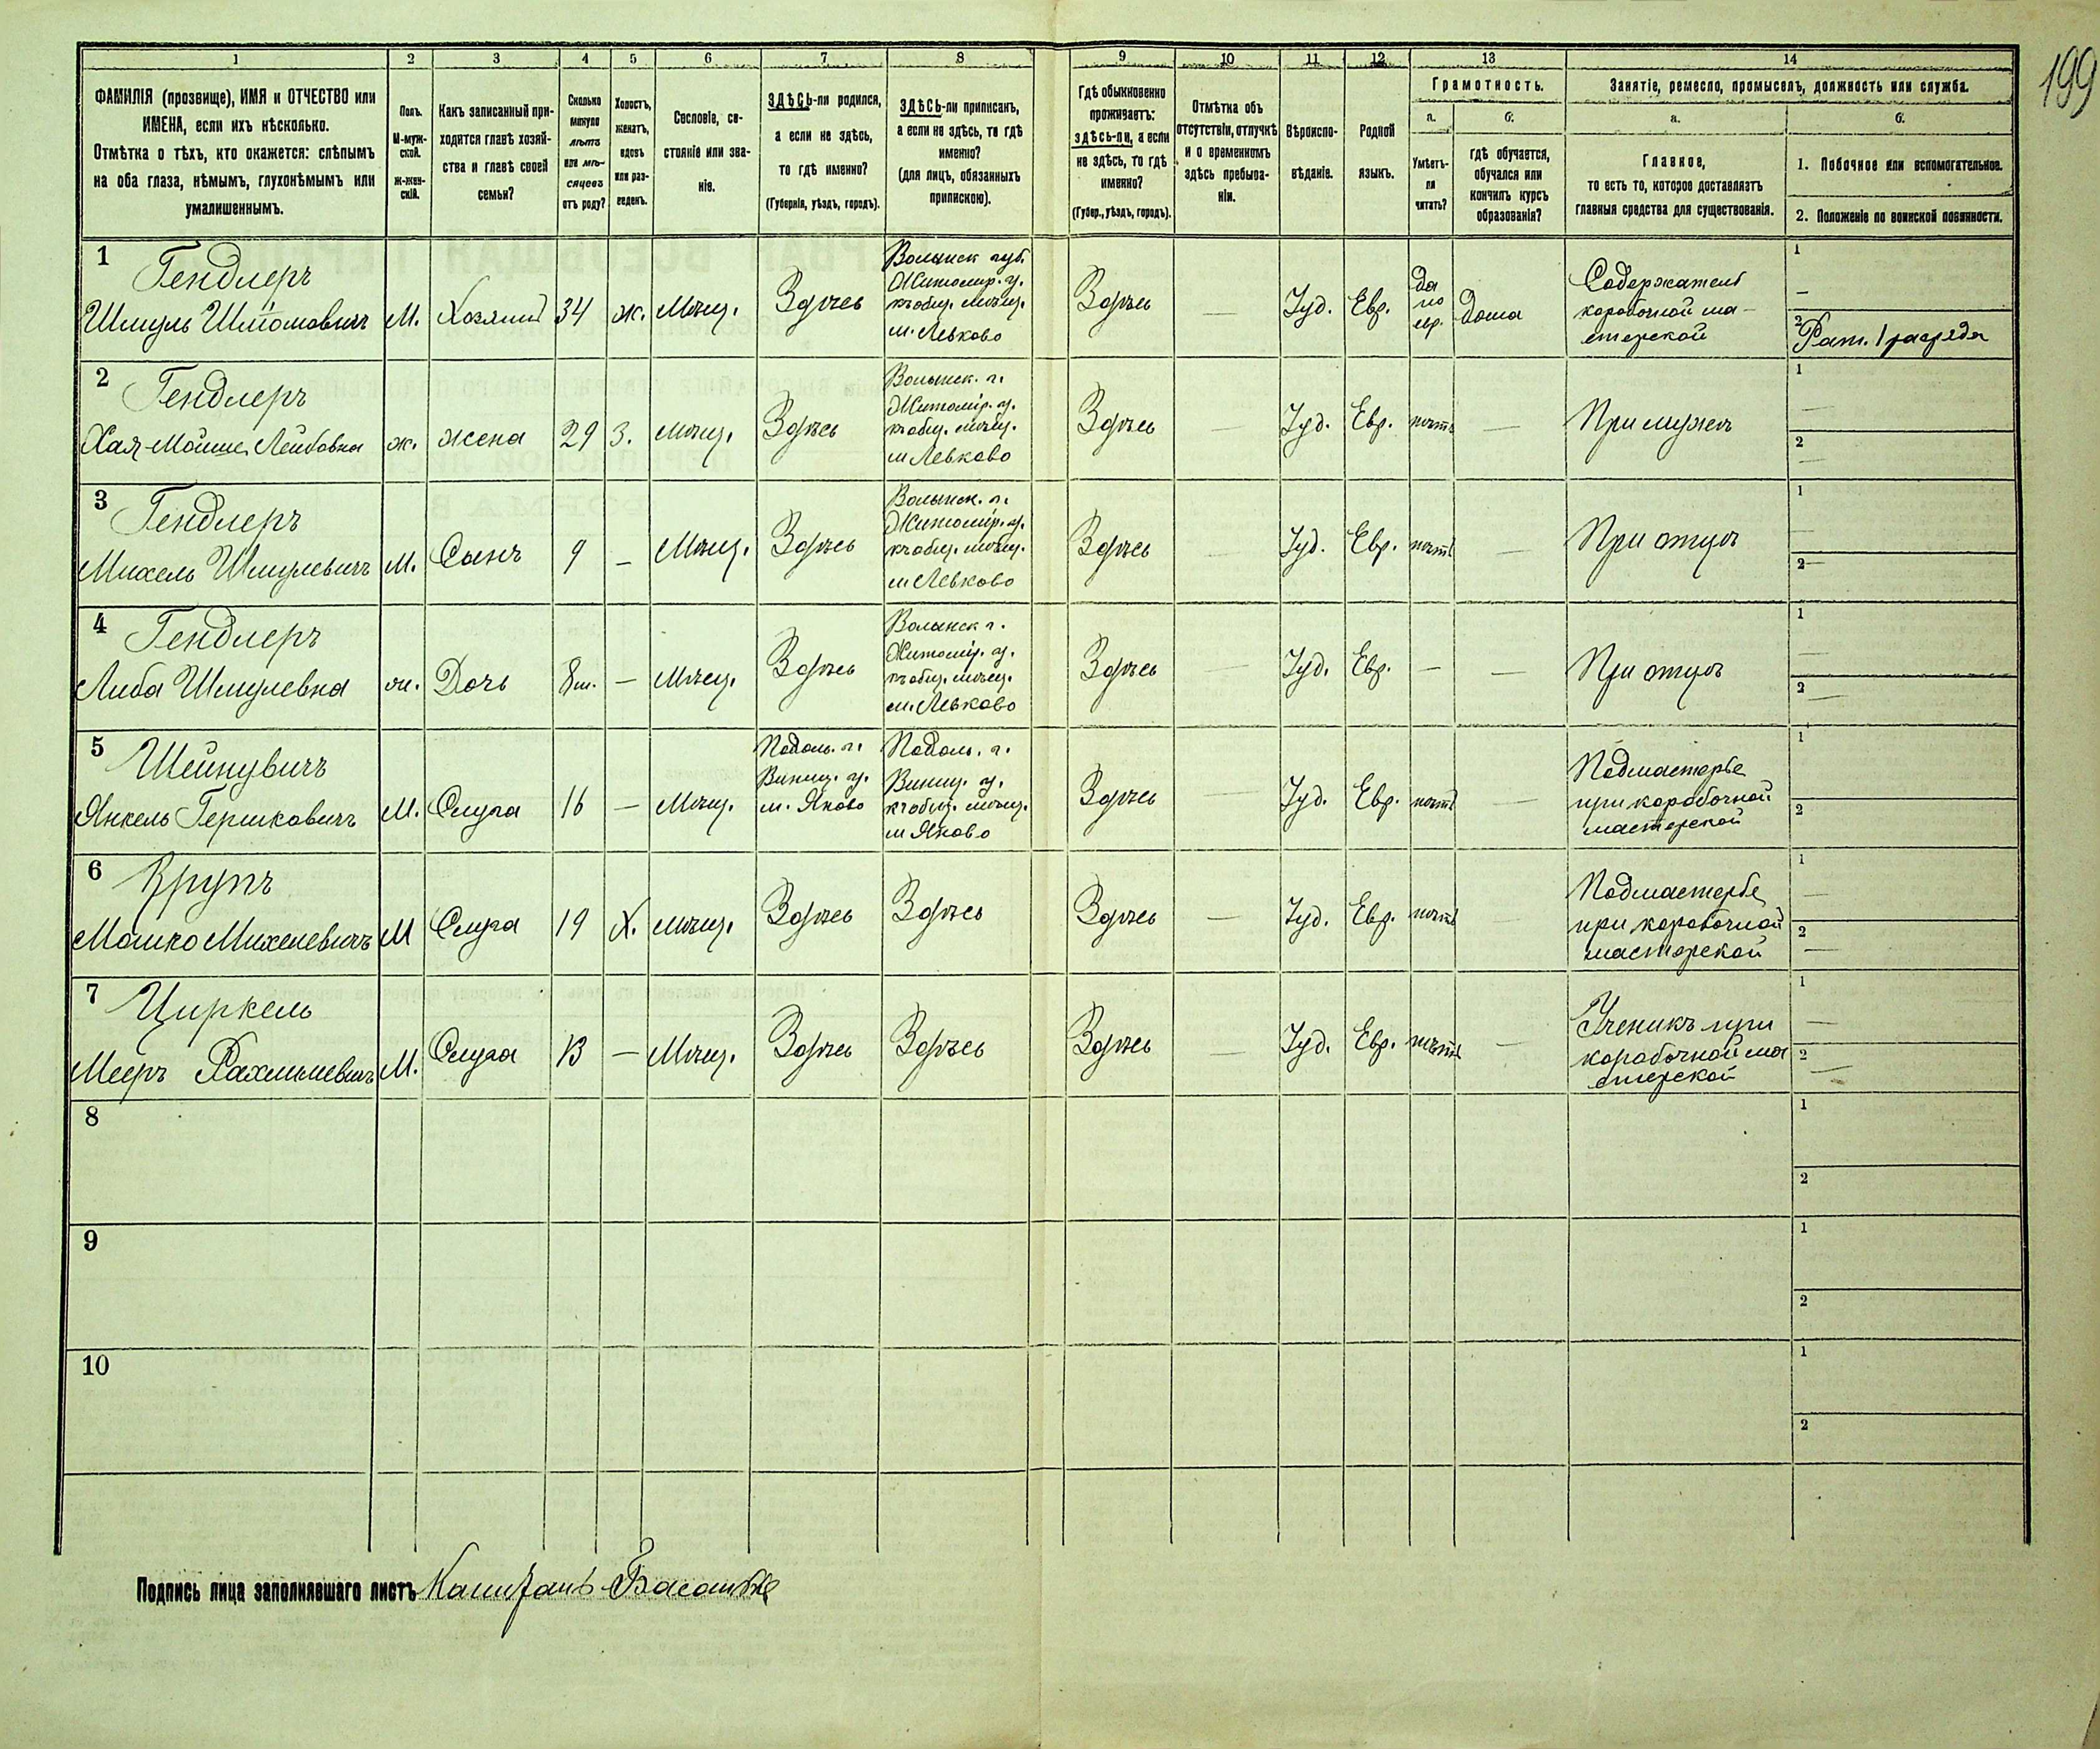 199
1 2 3 4 5 6 7 8 9 10 11 12 13 14
ФАМИЛІЯ (прозвище), ИМЯ и ОТЧЕСТВО или
ИМЕНА, если ихъ нѣсколько.
Отмѣтка о тѣхъ, кто окажется: слѣпымъ
на оба глаза, нѣмымъ, глухонѣмымъ или
умалишеннымъ.
Полъ.
М-муж-
ской.
Ж-жен-
скій.
Какъ записанный при-
ходится главѣ хозяй-
ства и главѣ своей
семьи?
Сколько
минуло
лѣтъ
или мѣ-
сяцевъ
отъ роду?
Холостъ,
женатъ,
вдовъ
или раз-
веденъ.
Сословіе, со-
стояніе или зва-
ніе.
ЗДѢСЬ-ли родился,
а если не здѣсь,
то гдѣ именно?
(Губернія, уѣздъ, городъ).
ЗДѢСЬ-ли приписанъ,
а если не здѣсь, то гдѣ
именно?
(для лицъ, обязанныхъ
припискою).
Гдѣ обыкновенно
проживаетъ:
здѣсь-ли, а если
не здѣсь, то гдѣ
именно?
(Губер., уѣздъ, городъ).
Отмѣтка объ
отсутствіи, отлучкѣ
и о временномъ
здѣсь пребыва-
ніи.
Вѣроиспо-
вѣданіе.
Родной
языкъ.
Грамотность.
а.
Умѣетъ-
ли
читать?
б.
гдѣ обучается,
обучался или
кончилъ курсъ
образованія?
Занятіе, ремесло, промыселъ, должность или служба.
а.
Главное,
то есть то, которое доставляетъ
главныя средства для существованія.
б.
1. Побочное или вспомогательное.
2. Положеніе по воинской повинности.
1
Гендлеръ
Шмуль Шліомовичъ
М.
Хозяинъ
34
ж.
Мѣщ.
Здѣсь
Волынск губ.
Житомир. у.
къ общ. мѣщ.
м. Левково
Здѣсь
—
Іуд.
Евр.
Да
по
евр.
Дома
Содержатель
коробочной ма-
стерской
1
—
2
Рат. 1 разряда
2
Гендлеръ
Хая-Мойше Лейбовна
ж.
жена
29
З.
мѣщ.
Здѣсь
Волынск. г.
Житомір. у.
къ общ. мѣщ.
м Левково
Здѣсь
—
Іуд.
Евр.
нѣтъ
—
При мужѣ
1
—
2
—
3
Гендлеръ
Михель Шмулевичъ
М.
Сынъ
9
—
Мѣщ.
Здѣсь
Волынск. г.
Житомір. у.
къ общ. мѣщ.
м Левково
Здѣсь
—
Іуд.
Евр.
нѣтъ
—
При отцѣ
1
—
2
—
4
Гендлеръ
Либа Шмулевна
ж.
Дочь
8 м.
—
Мѣщ.
Здѣсь
Волынск г.
Житомір. у.
къ общ. мѣщ.
м. Левково
Здѣсь
—
Іуд.
Евр.
—
—
При отцѣ
1
—
2
—
5
Шейнувичъ
Янкель Гершковичъ
М.
Слуга
16
—
Мѣщ.
Подоль. г.
Виниц. у.
м. Яново
Подоль. г.
Виниц. у.
къ общ. мѣщ.
м Яново
Здѣсь
—
Іуд.
Евр.
нѣтъ
—
Подмастерье
при коробочной
мастерской
1
2
6
Крупъ
Мошко Михелевичъ
М
Слуга
19
Х.
мѣщ.
Здѣсь
Здѣсь
Здѣсь
—
Іуд.
Евр.
нѣтъ
Подмастерье
при коробочной
мастерской
1
—
2
—
7
Циркель
Мееръ Рахмилевичъ
М.
Слуга
13
—
Мѣщ.
Здѣсь
Здѣсь
Здѣсь
—
Іуд.
Евр.
нѣтъ
—
Ученикъ при
коробочной ма
стерской
1
—
2
—
8
1
2
9
1
2
10
1
2
Подпись лица заполнявшаго листъ